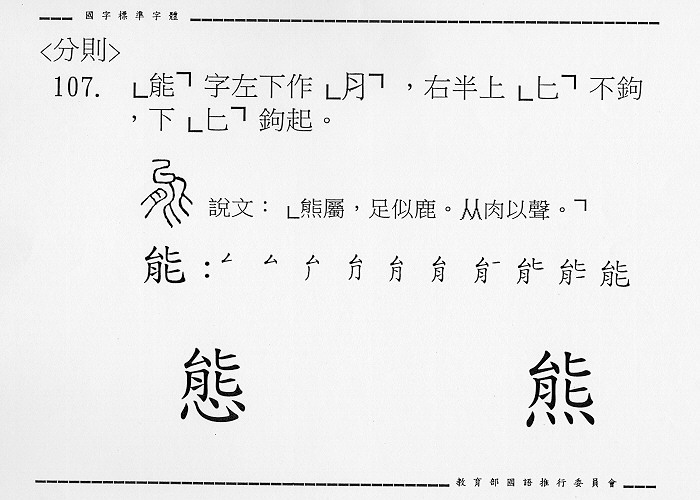 國字標準字體
<分則>
107. 「能」字左下作「⺼」，右半上「匕」不鉤
，下「匕」鉤起。
說文：「熊屬，足似鹿。从肉以聲。」
能：
態 熊
教育部國語推行委員會